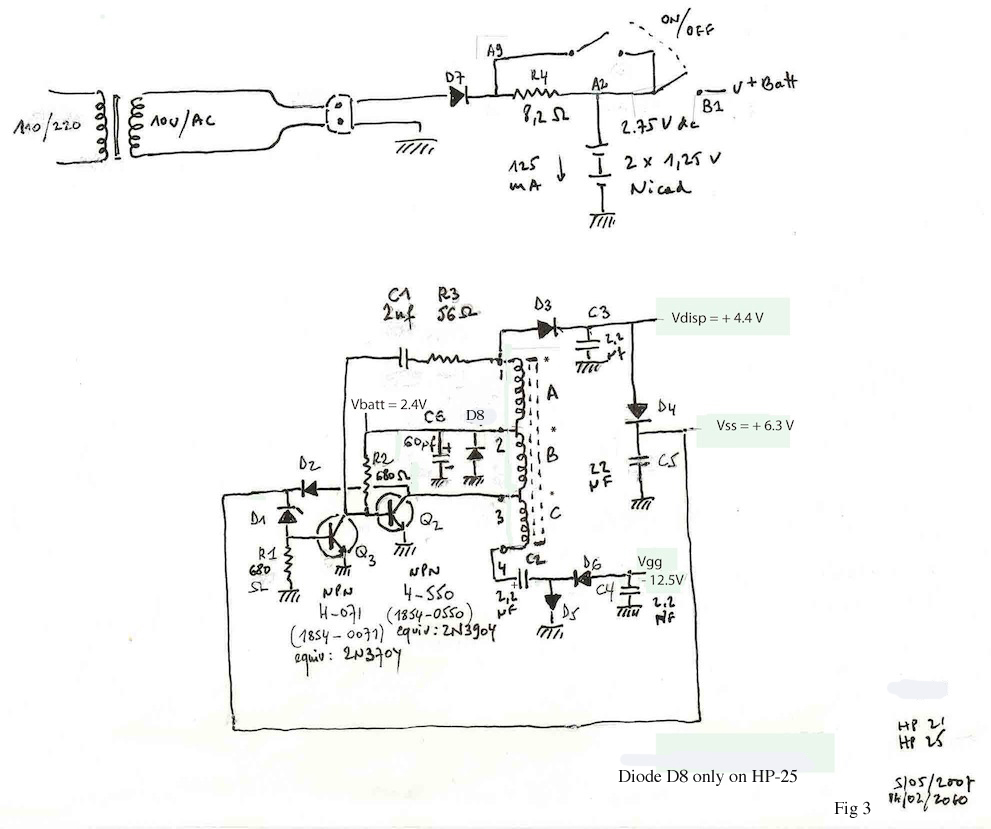 ON/OFF
A9
D7
R4
A2
V+Batt
B1
110/220
10V/AC
8,2 Ω
2.75 V dc
125
mA
2 x 1,25 V
Nicad
C1
2nf
R3
56Ω
D3
C3
2,2
µf
Vdisp = + 4.4 V
1
*
A
Vbatt = 2.4V
C6
60µf
D8
2
*
B
D4
Vss = + 6.3 V
R2
680Ω
D2
22
µF
C5
D1
Q2
3
*
C
R1
680
Ω
Q3
4
C2
+
2,2
µF
D6
D5
C4
Vgg
- 12.5V
2,2
µF
NPN
4-071
(1854-0071)
equiv: 2N3704
NPN
4-550
(1854-0550)
equiv: 2N3904
HP 21
HP 25
Diode D8 only on HP-25
Fig 3